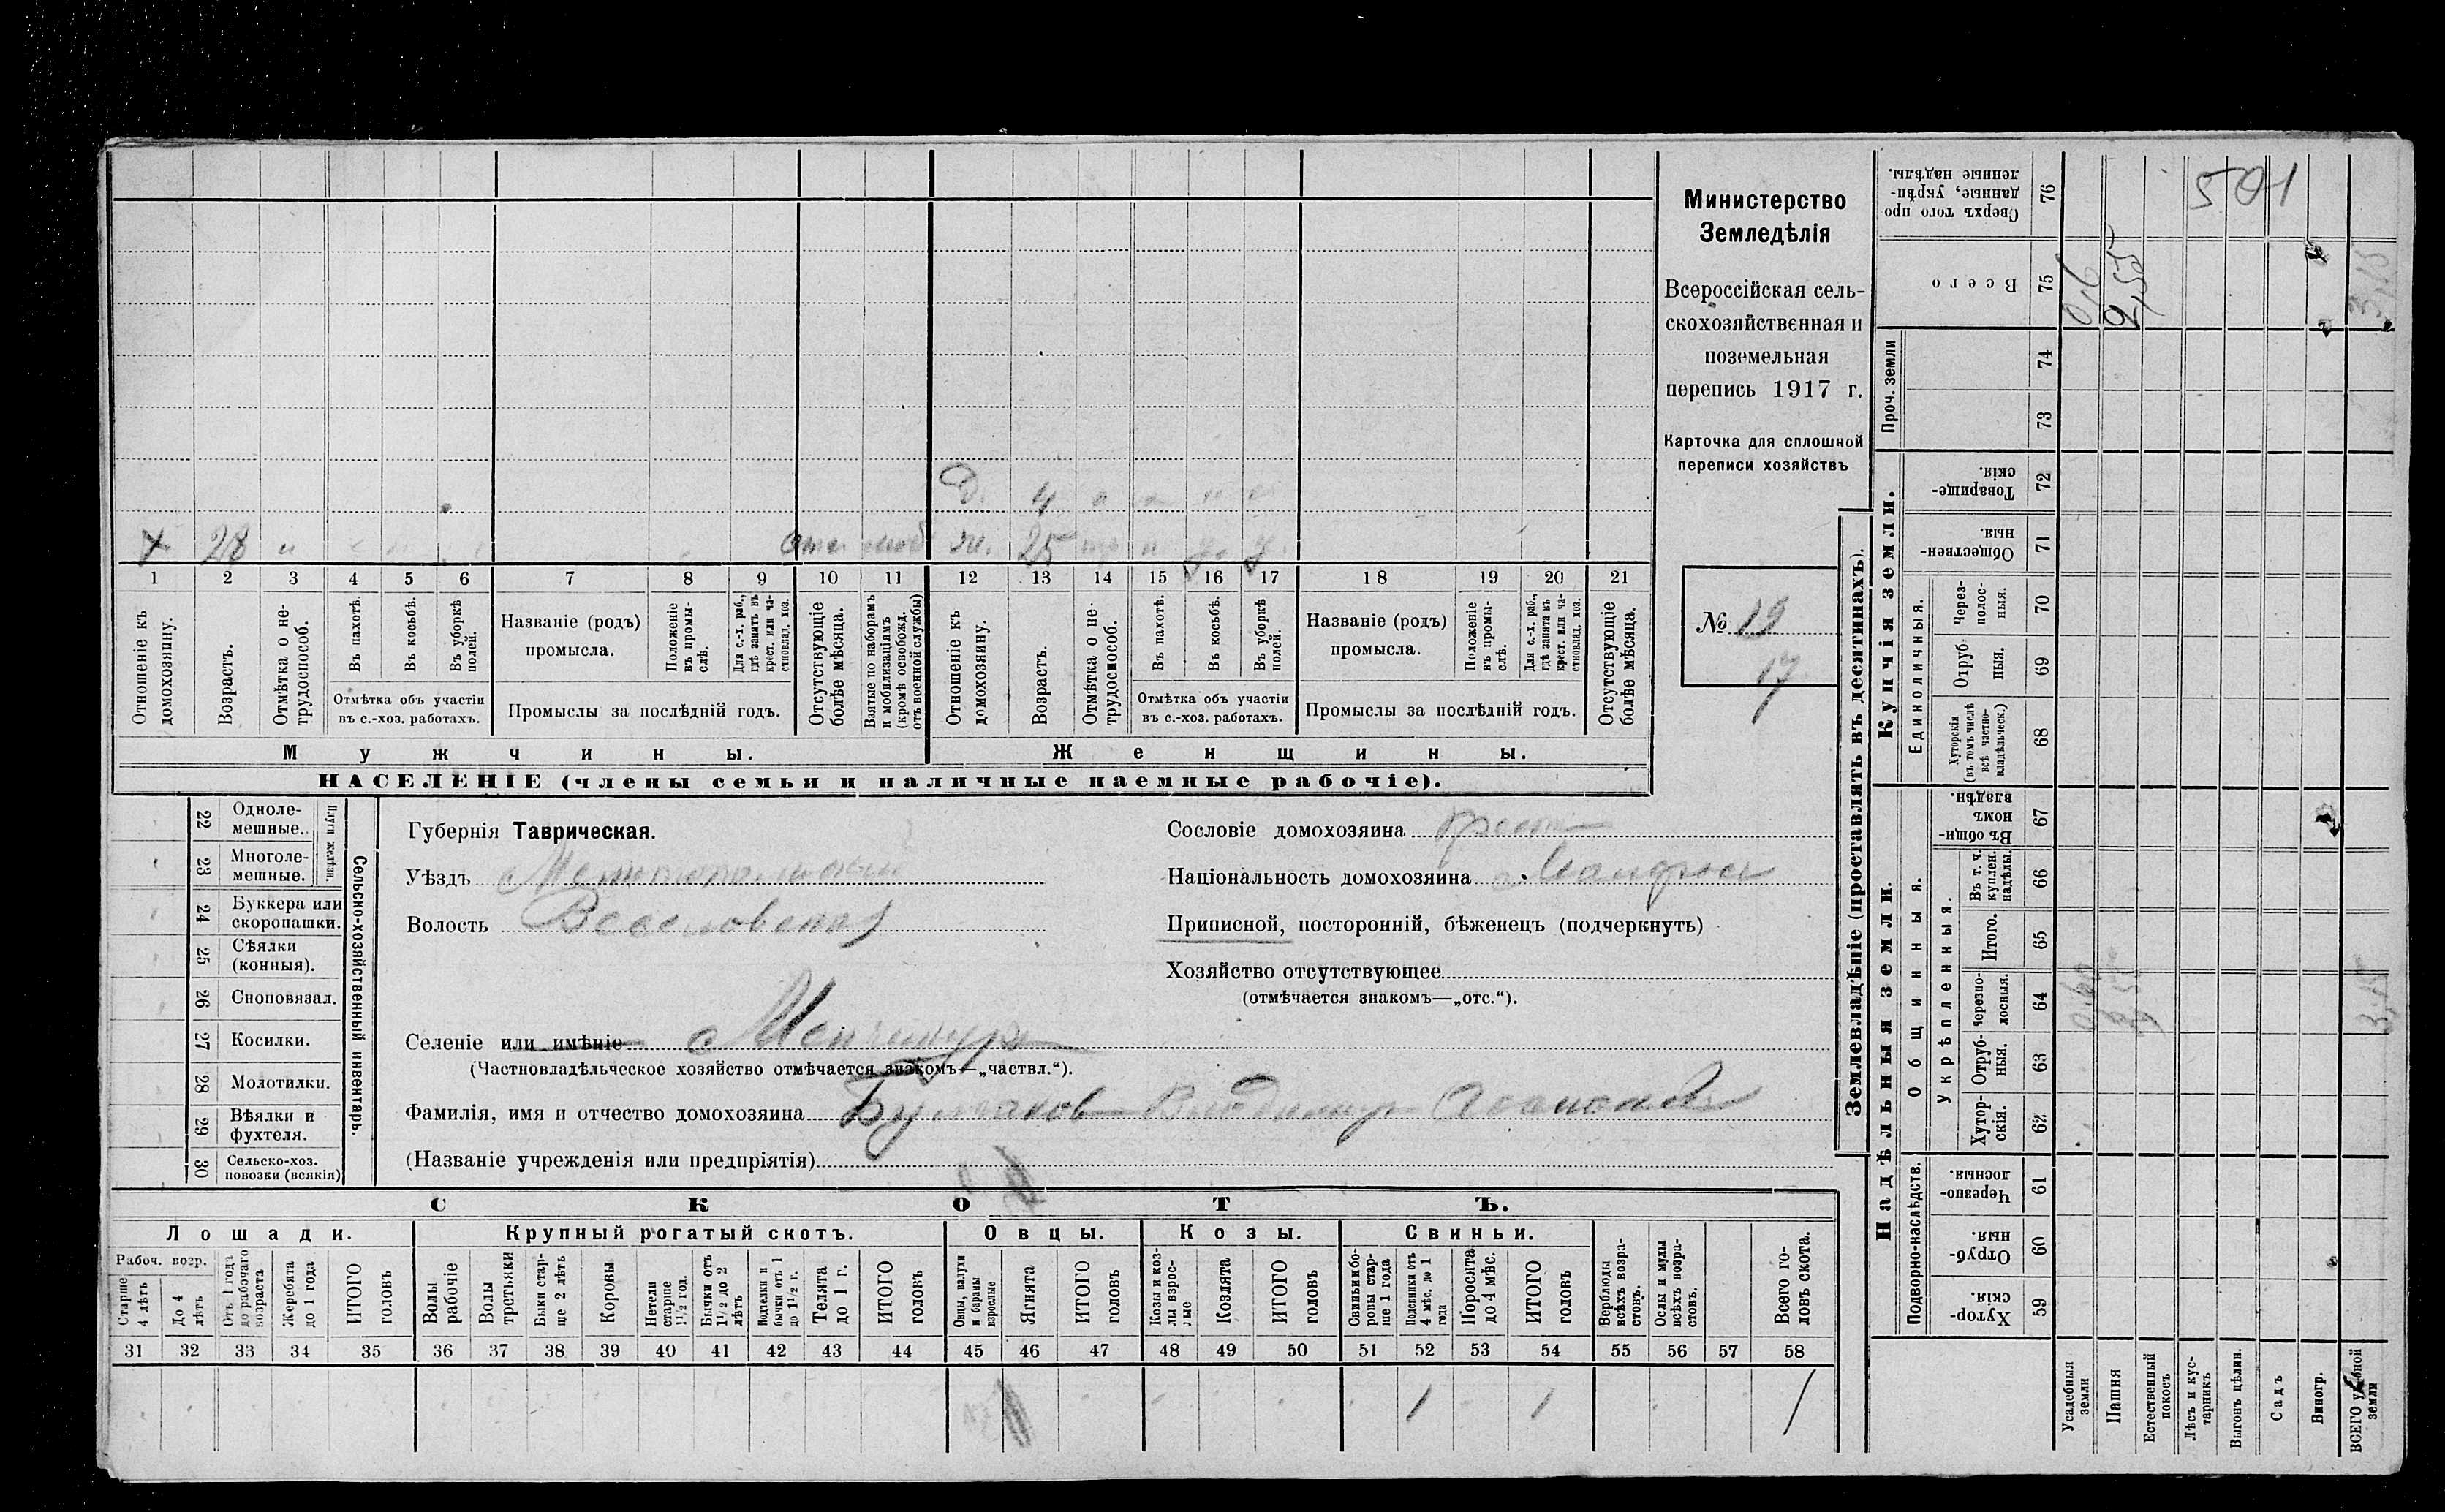 Министерство
Земледѣлія
Всероссійская сель-
скохозяйственная и
поземельная
перепись 1917 г.
Карточка для сплошной
переписи хозяйствъ
№ 19
17
4
28
25
1 2 3 4 5 6 7 8 9 10 11 12 13 14 15 16 17 18 19 20 21
Отношеніе къ домохозяину.
Возрастъ.
Отмѣтка о не-трудоспособ.
Въ пахотѣ.
Въ косьбѣ.
Въ уборкѣ полей.
Отмѣтка объ участіи
въ с.-хоз. работахъ.
Названіе (родъ)
промысла.
Положеніе въ промы-слѣ.
Для с.-х. раб., гдѣ занятъ въ крест. или ча-стновлад. хоз.
Промыслы за послѣдній годъ.
Отсутствующіе болѣе мѣсяца.
Взятые по наборамъ и мобилизаціямъ (кромѣ освобожд. отъ военной службы)
Отношеніе къ домохозяину.
Возрастъ.
Отмѣтка о не-трудоспособ.
Въ пахотѣ.
Въ косьбѣ.
Въ уборкѣ полей.
Отмѣтка объ участіи
въ с.-хоз. работахъ.
Названіе (родъ)
промысла.
Положеніе въ промы-слѣ.
Для с.-х. раб., гдѣ занята въ крест. или ча-стновлад. хоз.
Промыслы за послѣдній годъ.
Отсутствующіе болѣе мѣсяца.
Мужчины. Женщины.
НАСЕЛЕНІЕ (члены семьи и наличные наемные рабочіе).
Сельско-хозяйственный инвентарь.
Плуги желѣзн.
22 Одноле-
мешные.
23 Многоле-
мешные.
24 Буккера или
скоропашки.
25 Сѣялки
(конныя).
26 Сноповязал.
27 Косилки.
28 Молотилки.
29 Вѣялки и
фухтеля.
30 Сельско-хоз.
повозки (всякія)
Губернія Таврическая.
Уѣздъ Мелитопольскій
Волость Веселовская
Селеніе или имѣніе
(Частновладѣльческое хозяйство отмѣчается знакомъ—„частвл.“).
Фамилія, имя и отчество домохозяина Владимир
(Названіе учрежденія или предпріятія)
Сословіе домохозяина крест
Національность домохозяина Малорос
Приписной, посторонній, бѣженецъ (подчеркнуть)
Хозяйство отсутствующее
(отмѣчается знакомъ—„отс.“).
СКОТЪ.
Лошади. Крупный рогатый скотъ. Овцы. Козы. Свиньи.
Рабоч. возр.
Старше 4 лѣтъ
До 4 лѣтъ
Отъ 1 года до рабочаго возраста
Жеребята до 1 года
ИТОГО головъ
Волы рабочіе
Волы третьяки
Быки стар-ше 2 лѣтъ
Коровы
Нетели старше 1½ год.
Бычки отъ 1½ до 2 лѣтъ
Подтелки и бычки отъ 1 до 1½ г.
Телята до 1 г.
ИТОГО головъ
Овцы, валухи и бараны взрослые
Ягнята
ИТОГО головъ
Козы и коз-лы взрос-лые
Козлята
ИТОГО головъ
Свиньи и бо-ровы стар-ше 1 года
Подсвинки отъ 4 мѣс. до 1 года
Поросята до 4 мѣс.
ИТОГО головъ
Верблюды всѣхъ возра-стовъ.
Ослы и мулы всѣхъ возра-стовъ.
Всего го-ловъ скота.
31 32 33 34 35 36 37 38 39 40 41 42 43 44 45 46 47 48 49 50 51 52 53 54 55 56 57 58
1 1 1
Землевладѣніе (проставлять въ десятинахъ).
Надѣльныя земли.
Купчія земли.
Проч. земли
Подворно-наслѣдств.
Общинныя.
Укрѣпленныя.
Единоличныя.
Сверхъ того про данные, укрѣп-ленные надѣлы. 76
Всего 75
74
73
Товарище-скія. 72
Обществен-ныя. 71
Через-полос-ныя. 70
Отруб-ныя. 69
Хуторскія (въ томъ числѣ всѣ частно-владѣльческ.) 68
Въ общи-номъ владѣн. 67
Въ т. ч. куплен. надѣлы. 66
Итого. 65
Черезпо-лосныя. 64
Отруб-ныя. 63
Хутор-скія. 62
Черезпо-лосныя. 61
Отруб-ныя. 60
Хутор-скія. 59
501
0,6
2,55
3,15
0,60
2,55
3,15
Усадебныя земли
Пашня
Естественный покосъ
Лѣсъ и кус-тарникъ
Выгонъ цѣлин.
Садъ
Виногр.
ВСЕГО удобной земли